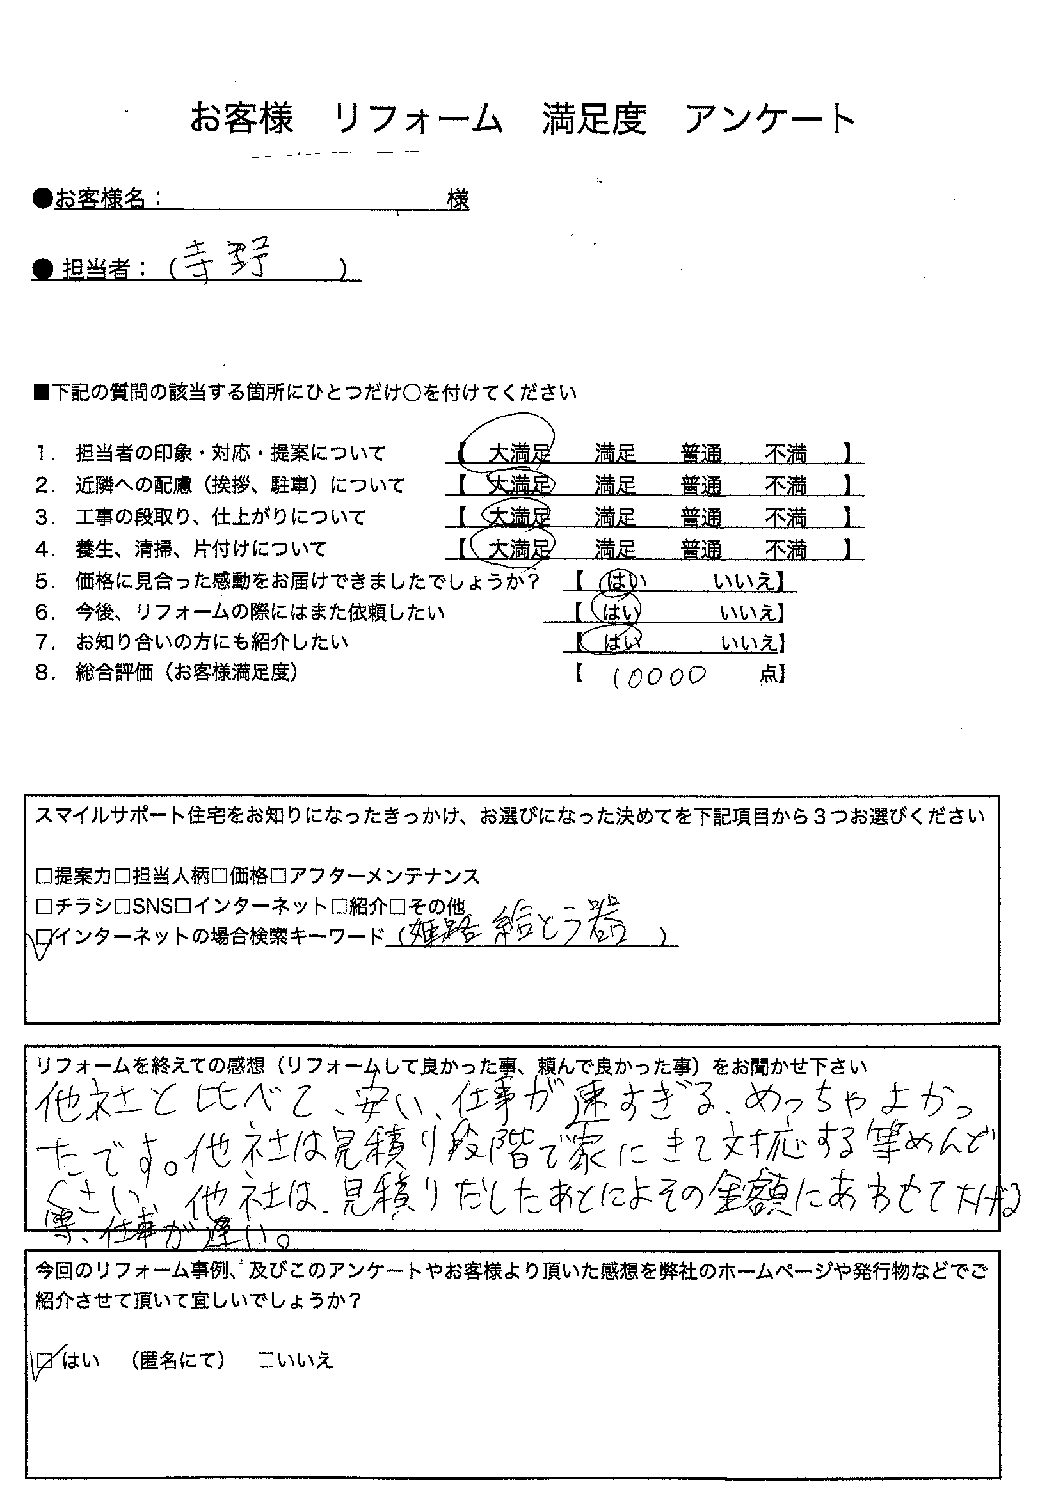 お客様 リフォーム 満足度 アンケート
●お客様名： 様
●担当者：（寺野 ）
■下記の質問の該当する箇所にひとつだけ〇を付けてください
1. 担当者の印象・対応・提案について 【 大満足 満足 普通 不満 】
2. 近隣への配慮（挨拶、駐車）について 【 大満足 満足 普通 不満 】
3. 工事の段取り、仕上がりについて 【 大満足 満足 普通 不満 】
4. 養生、清掃、片付けについて 【 大満足 満足 普通 不満 】
5. 価格に見合った感動をお届けできましたでしょうか？ 【 はい いいえ】
6. 今後、リフォームの際にはまた依頼したい 【 はい いいえ】
7. お知り合いの方にも紹介したい 【 はい いいえ】
8. 総合評価（お客様満足度） 【 10000 点】
スマイルサポート住宅をお知りになったきっかけ、お選びになった決めてを下記項目から３つお選びください
□提案力□担当人柄□価格□アフターメンテナンス
□チラシ□SNS□インターネット□紹介□その他
□インターネットの場合検索キーワード（姫路 給とう器 ）
リフォームを終えての感想（リフォームして良かった事、頼んで良かった事）をお聞かせ下さい
他社と比べて、安い、仕事が速すぎる、めっちゃよかっ
たです。他社は見積り段階で家にきて対応する等めんど
くさい、他社は、見積りだしたあとによその金額にあわせて下げる
等、仕事が遅い。
今回のリフォーム事例、及びこのアンケートやお客様より頂いた感想を弊社のホームページや発行物などでご
紹介させて頂いて宜しいでしょうか？
□はい （匿名にて） □いいえ